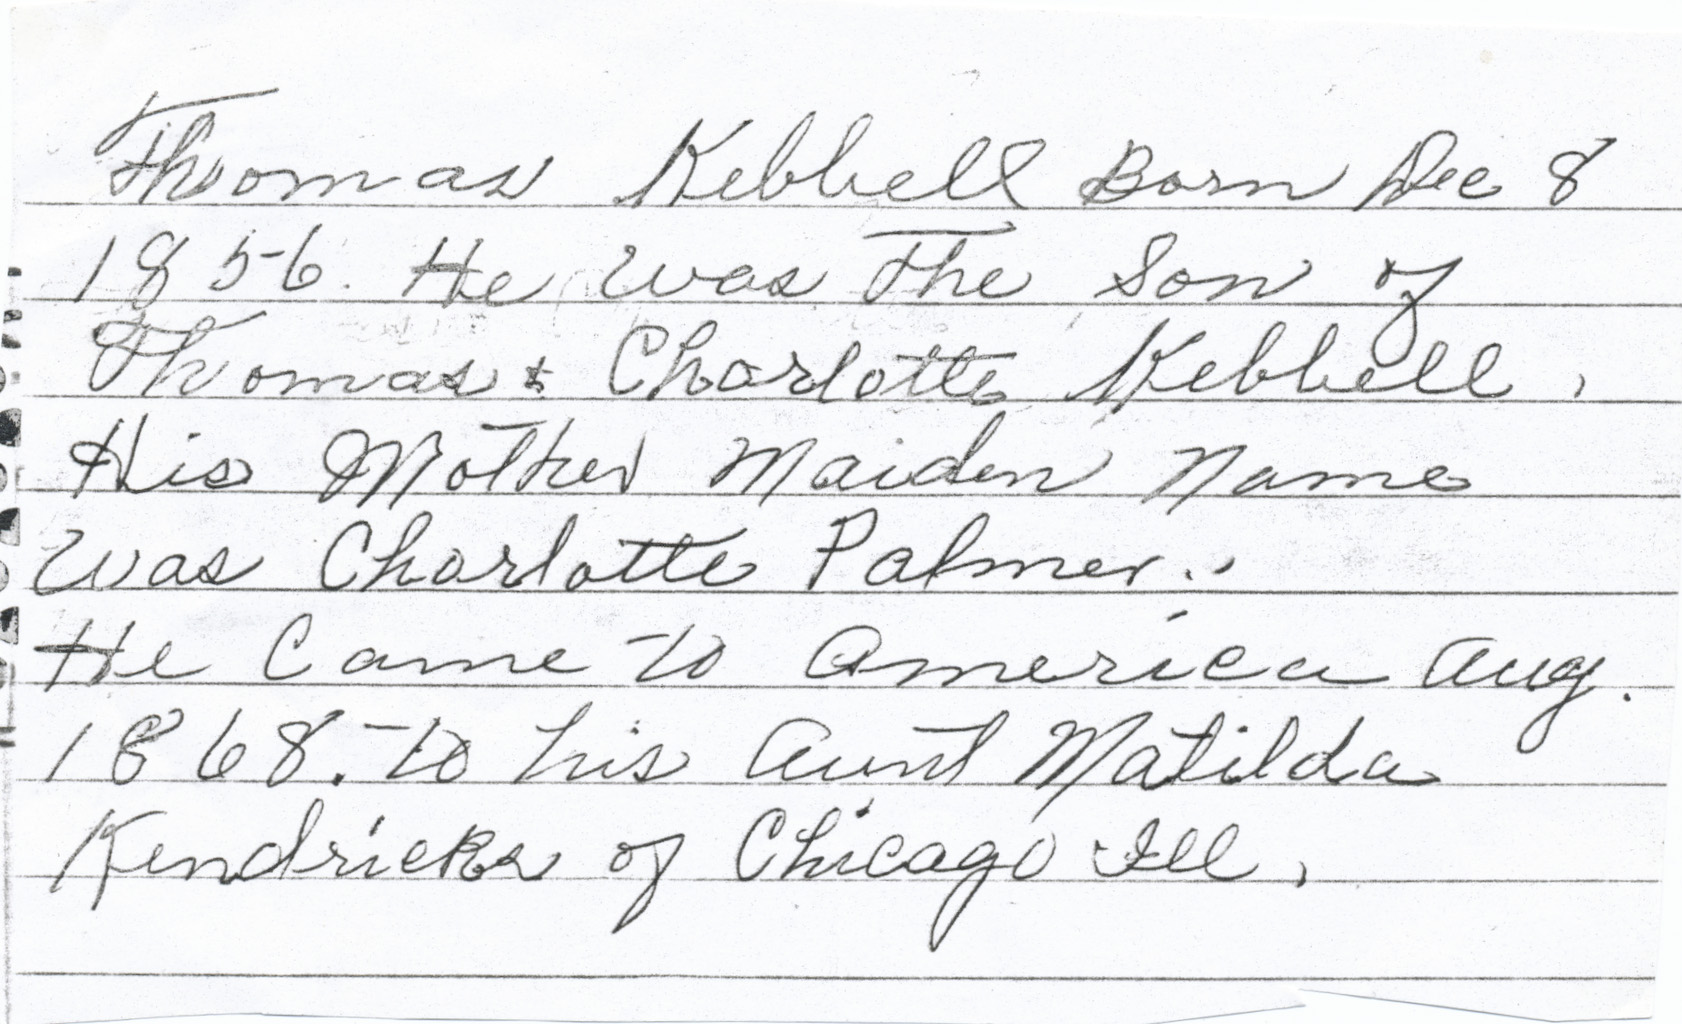 Thomas Kebbell Born Dec 8
1856. He was The Son of
Thomas & Charlotte Kebbell,
His Mother Maiden Name
was Charlotte Palmer.
He Came to America Aug.
1868. to his Aunt Matilda
Kendricks of Chicago Ill,